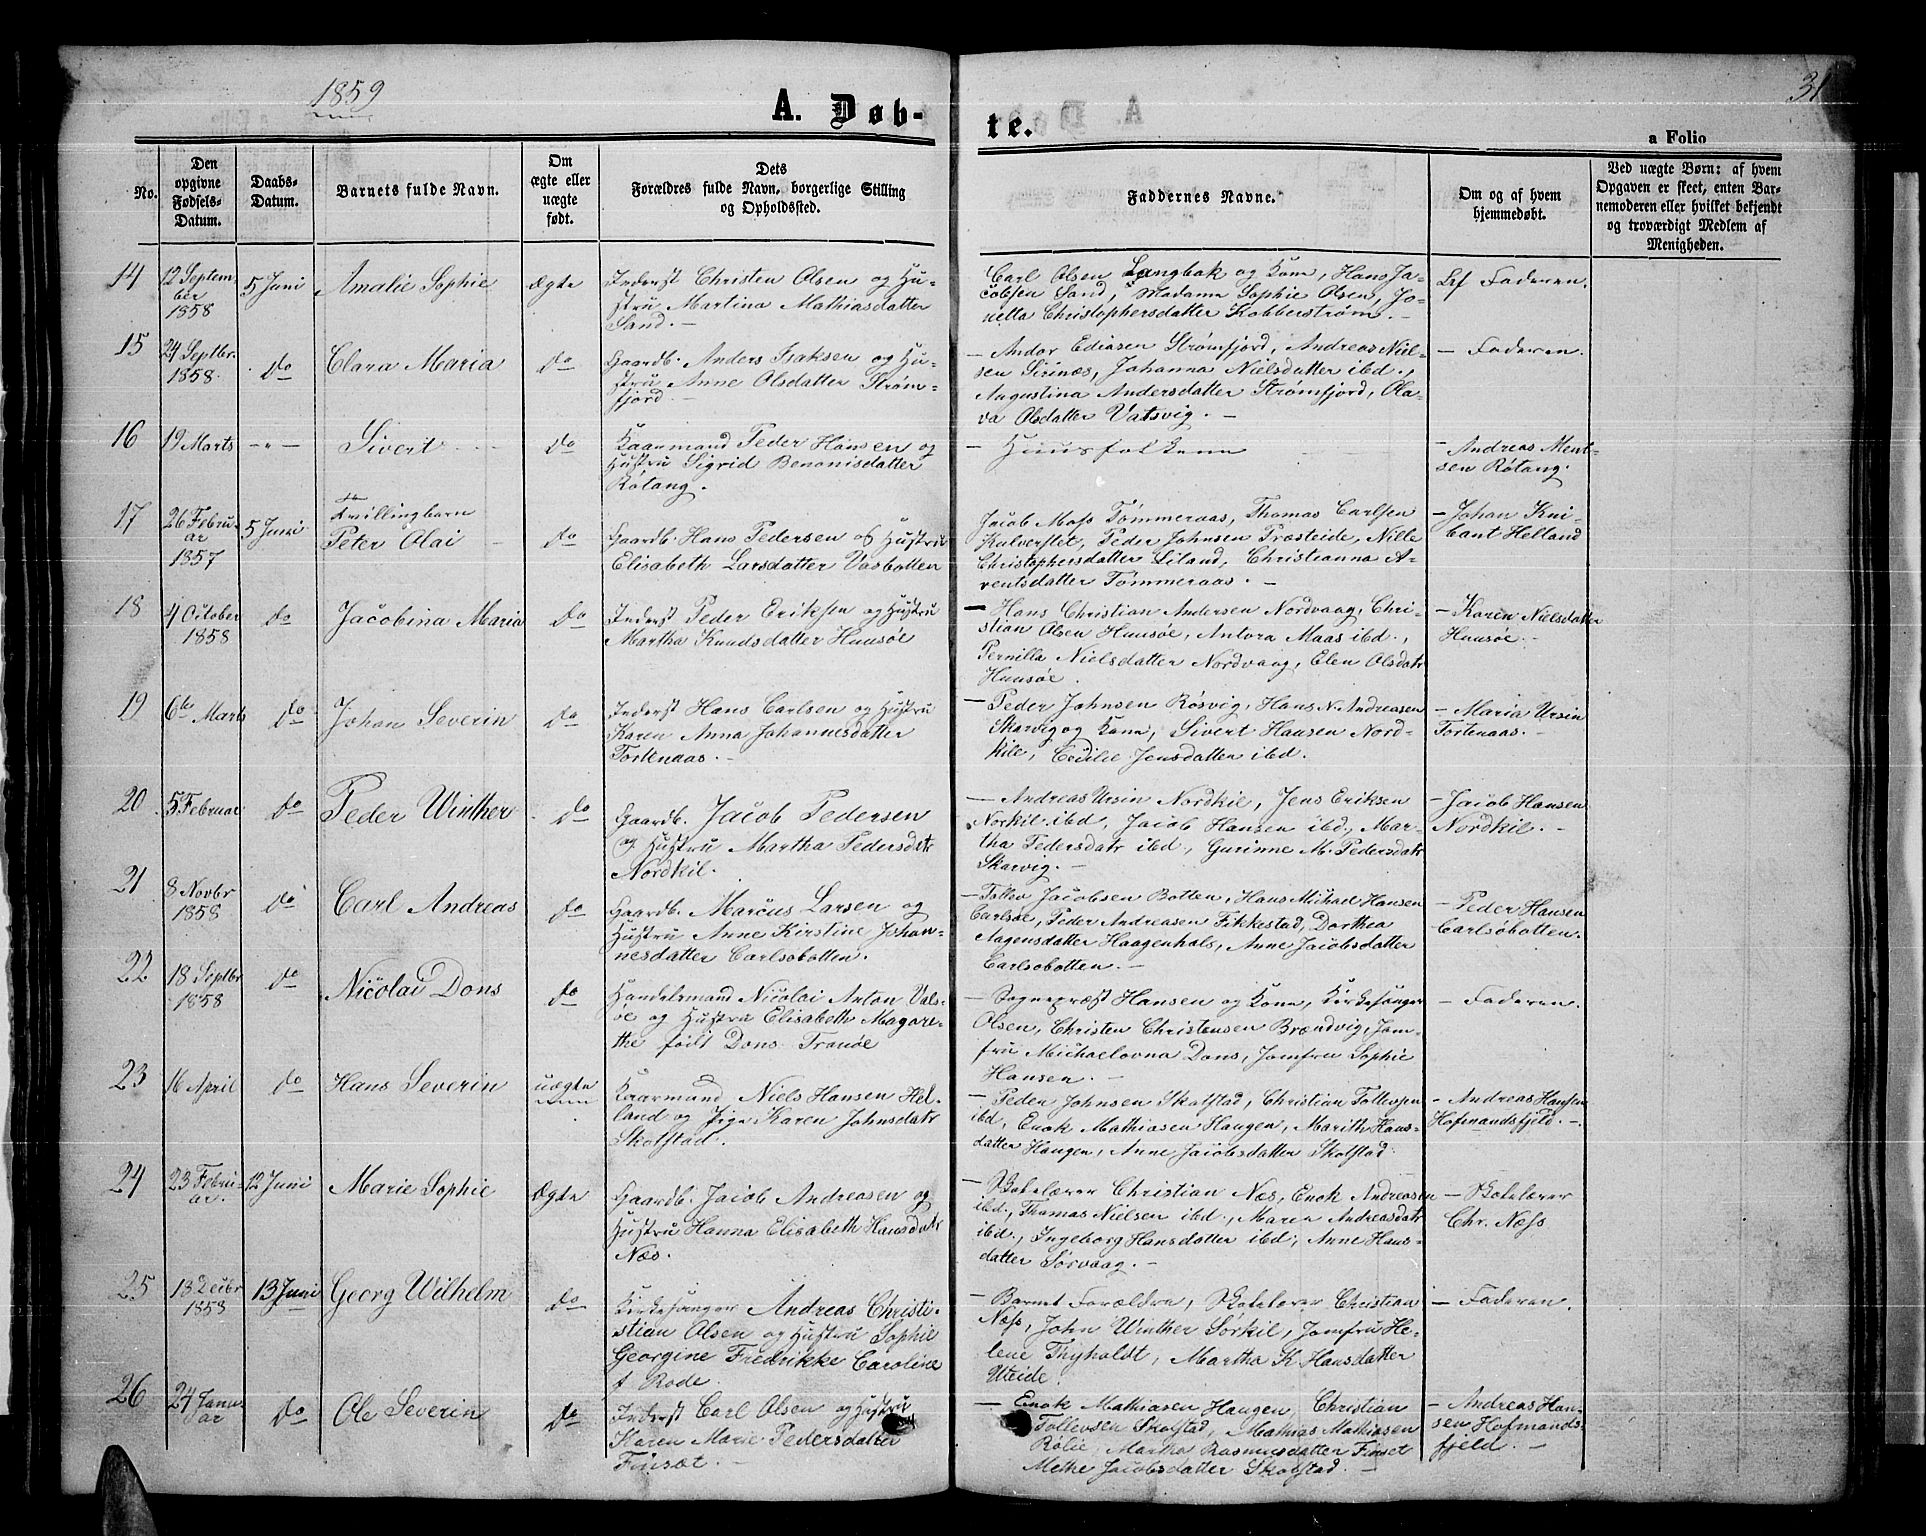 1859
31
A. Døb-
te.
a Folio
No.
Den
opgivne
Fødsels-
Datum.
Daabs-
Datum.
Barnets fulde Navn.
Om
ægte eller
uægte
født.
Dets
Forældres fulde Navn, borgerlige Stilling
og Opholdssted.
Faddernes Navne.
Om og af hvem
hjemmedøbt.
Ved uægte Børn: af hvem
Opgaven er skeet, enten Bar-
nemoderen eller hvilket bekjendt
og troværdigt Medlem af
Menigheden.
14
12 Septem-
ber
1858
5 Juni
Amalie Sophie
Ægte
Inderst Christen Olsen og Hu-
stru Martina Mathiasdatter
Sand.
Carl Olsen Langbak og Kone, Hans Ja-
cobsen Sand, Madame Sophie Olsen, Jo-
netta Christophersdatter Kobberstrøm.
Faderen.
15
24 Septbr.
1858.
do
Clara Maria
do
Gaardb. Anders Isaksen og Hu-
stru Anne Olsdatter Strøm-
fjord.
— Andor Ediasen Strømfjord, Andreas Niel-
sen Sirinæs, Johanna Nielsdatter ibd.,
Augustina Andersdatter Strømfjord, Ola-
va Olsdatter Vatsvig.
— Faderen.
16
19 Marts
-"-
Sivert
do
Kaarmand Peder Hansen og
Hustru Sigrid Benonisdatter
Røtang.
— Huusfolkene
— Andreas Ment-
sen Røtang.
17
26 Febru-
ar
1857
5 Juni
Tvillingbarn
Peter Olai
do
Gaardb. Hans Pedersen og Hustru
Elisabeth Larsdatter Vasbotten
Jacob Moss Tømmeraas, Thomas Carlsen
Kulverstet, Peder Johnsen Præsteide, Nille
Christophersdatter Liland, Christianna A-
rentsdatter Tømmeraas.
— Johan Kni-
Helland
18
4 October
1858
do
Jacobina Maria
do
Inderst Peder Eriksen og Hustru
Martha Knudsdatter Huusøe
— Hans Christian Andersen Nordvaag, Chri-
stian Olsen Huusøe, Antora Maas ibd.,
Pernilla Nielsdatter Nordvaag, Elen Olsdatr
Huusøe.
— Karen Nielsdatter
Huusøe.
19
6te Marts
do
Johan Severin
do
Inderst Hans Carlsen og Hustru
Karen Anna Johannesdatter
Tortenaas.
— Peder Johnsen Røsvig, Hans N. Andreasen
Skarvig og Kone, Sivert Hansen Nord-
kile, Cecilie Jensdatter ibd.
— Maria Ursin
Tortenaas.
20
5 Februar
do
Peder Winther
do
Gaardb. Jacob Pedersen
og Hustru Martha Pedersdatr
Nordkil.
— Andreas Ursin Nordkil, Jens Eriksen
Norkil ibd, Jacob Hansen ibd., Mar-
tha Pedersdatr ibd, Gurinne M. Pedersdatr
Skarvig.
— Jacob Hansen
Nordkil.
21
8 Novbr
1858
do
Carl Andreas
do
Gaardb. Marcus Larsen og
Hustru Anne Kirstine Johan-
nesdatter Carlsøbotten.
— Tollev Jacobsen Botten, Hans Michael Hansen
Carlsøe, Peder Andreasen Fikkestad, Dorthea
Aagensdatter Haagenhals, Anne Jacobsdatter
Carlsobotten.
— Peder Hansen
Carlsøbotten.
22
18 Septbr
1858
do
Nicolai Dons
do
Handelsmand Nicolai Anton Vals-
øe og Hustru Elisabeth Magare-
the født Dons Tranøe
— Sognepræst Hansen og Kone, Kirkesanger
Olsen, Christen Christensen Brændvig, Jom-
fru Michaelovna Dons, Jomfru Sophie
Hansen.
— Faderen.
23
16 April
do
Hans Severin
uægte
Kaarmand Niels Hansen Hel-
land og Pige Karen Johnsdatr
Skolstad.
— Peder Johnsen Skolstad, Christian Tollevsen
ibd, Enok Mathiasen Haugen, Marith Hans-
datter Haugen, Anne Jacobsdatter Skolstad
— Andreas Hansen
Hofmandsfjeld.
24
23 Febru-
ar.
12 Juni
Marie Sophie
Ægte
Gaardb. Jacob Andreasen og
Hustru Hanna Elisabeth Hansdatr
Næs.
— Skolelærer Christian Næs, Enok Andreasen
ibd., Thomas Nielsen ibd., Maren Andreasdatr
ibd., Ingeborg Hansdatter ibd., Anne Hans-
datter Sørvaag.
— Skolelærer
Chr. Næss
25
18 Decbr
1858
13 Juni
Georg Wilhelm
do
Kirkesanger Andreas Christi-
stian Olsen og Hustru Sophie
Georgine Fredrikke Caroline
f. Rode.
— Barnets Forældre, Skolelærer Christian
Næss, John Winther Sørkil, Jomfru He-
lene Thyholdt, Martha K. Hansdatter
Uteide.
— Faderen.
26
24 Janu-
ar
do
Ole Severin
do
Inderst Carl Olsen og Hustru
Karen Marie Pedersdatter
Finsæt.
— Enok Mathiasen Haugen, Christian
Tollevsen Skolstad, Mathias Mathiasen
Rølie, Martha Rasmusdatter Finset
Methe Jacobsdatter Skolstad.
— Andreas Han-
sen Hofmands-
fjeld.